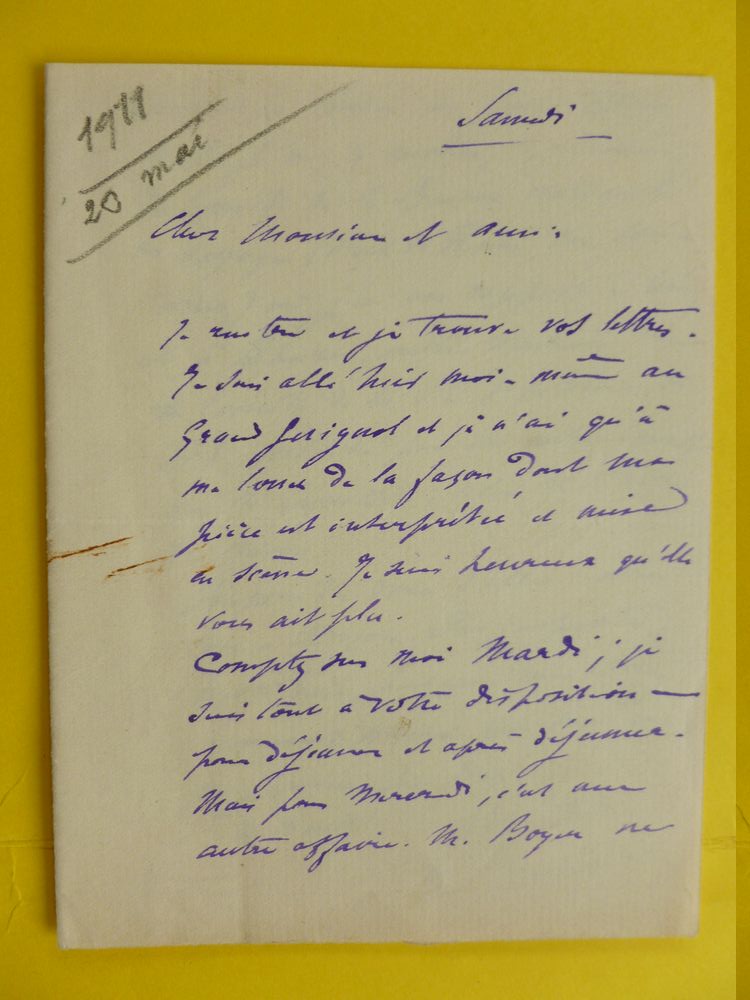 1911
20 mai
Samedi
Cher Monsieur et ami.
Je rentre et je trouve vos lettres.
Je suis allé hier moi-même au
Grand Guignol et je n'ai qu'à
me louer de la façon dont ma
pièce est interprétée et mise
en scène. Je suis heureux qu'elle
vous ait plu.
Comptez sur moi Mardi ; je
suis tout à votre disposition —
pour déjeuner et après déjeuner.
Mais pour Mercredi, c'est une
autre affaire. M. Boyer ne